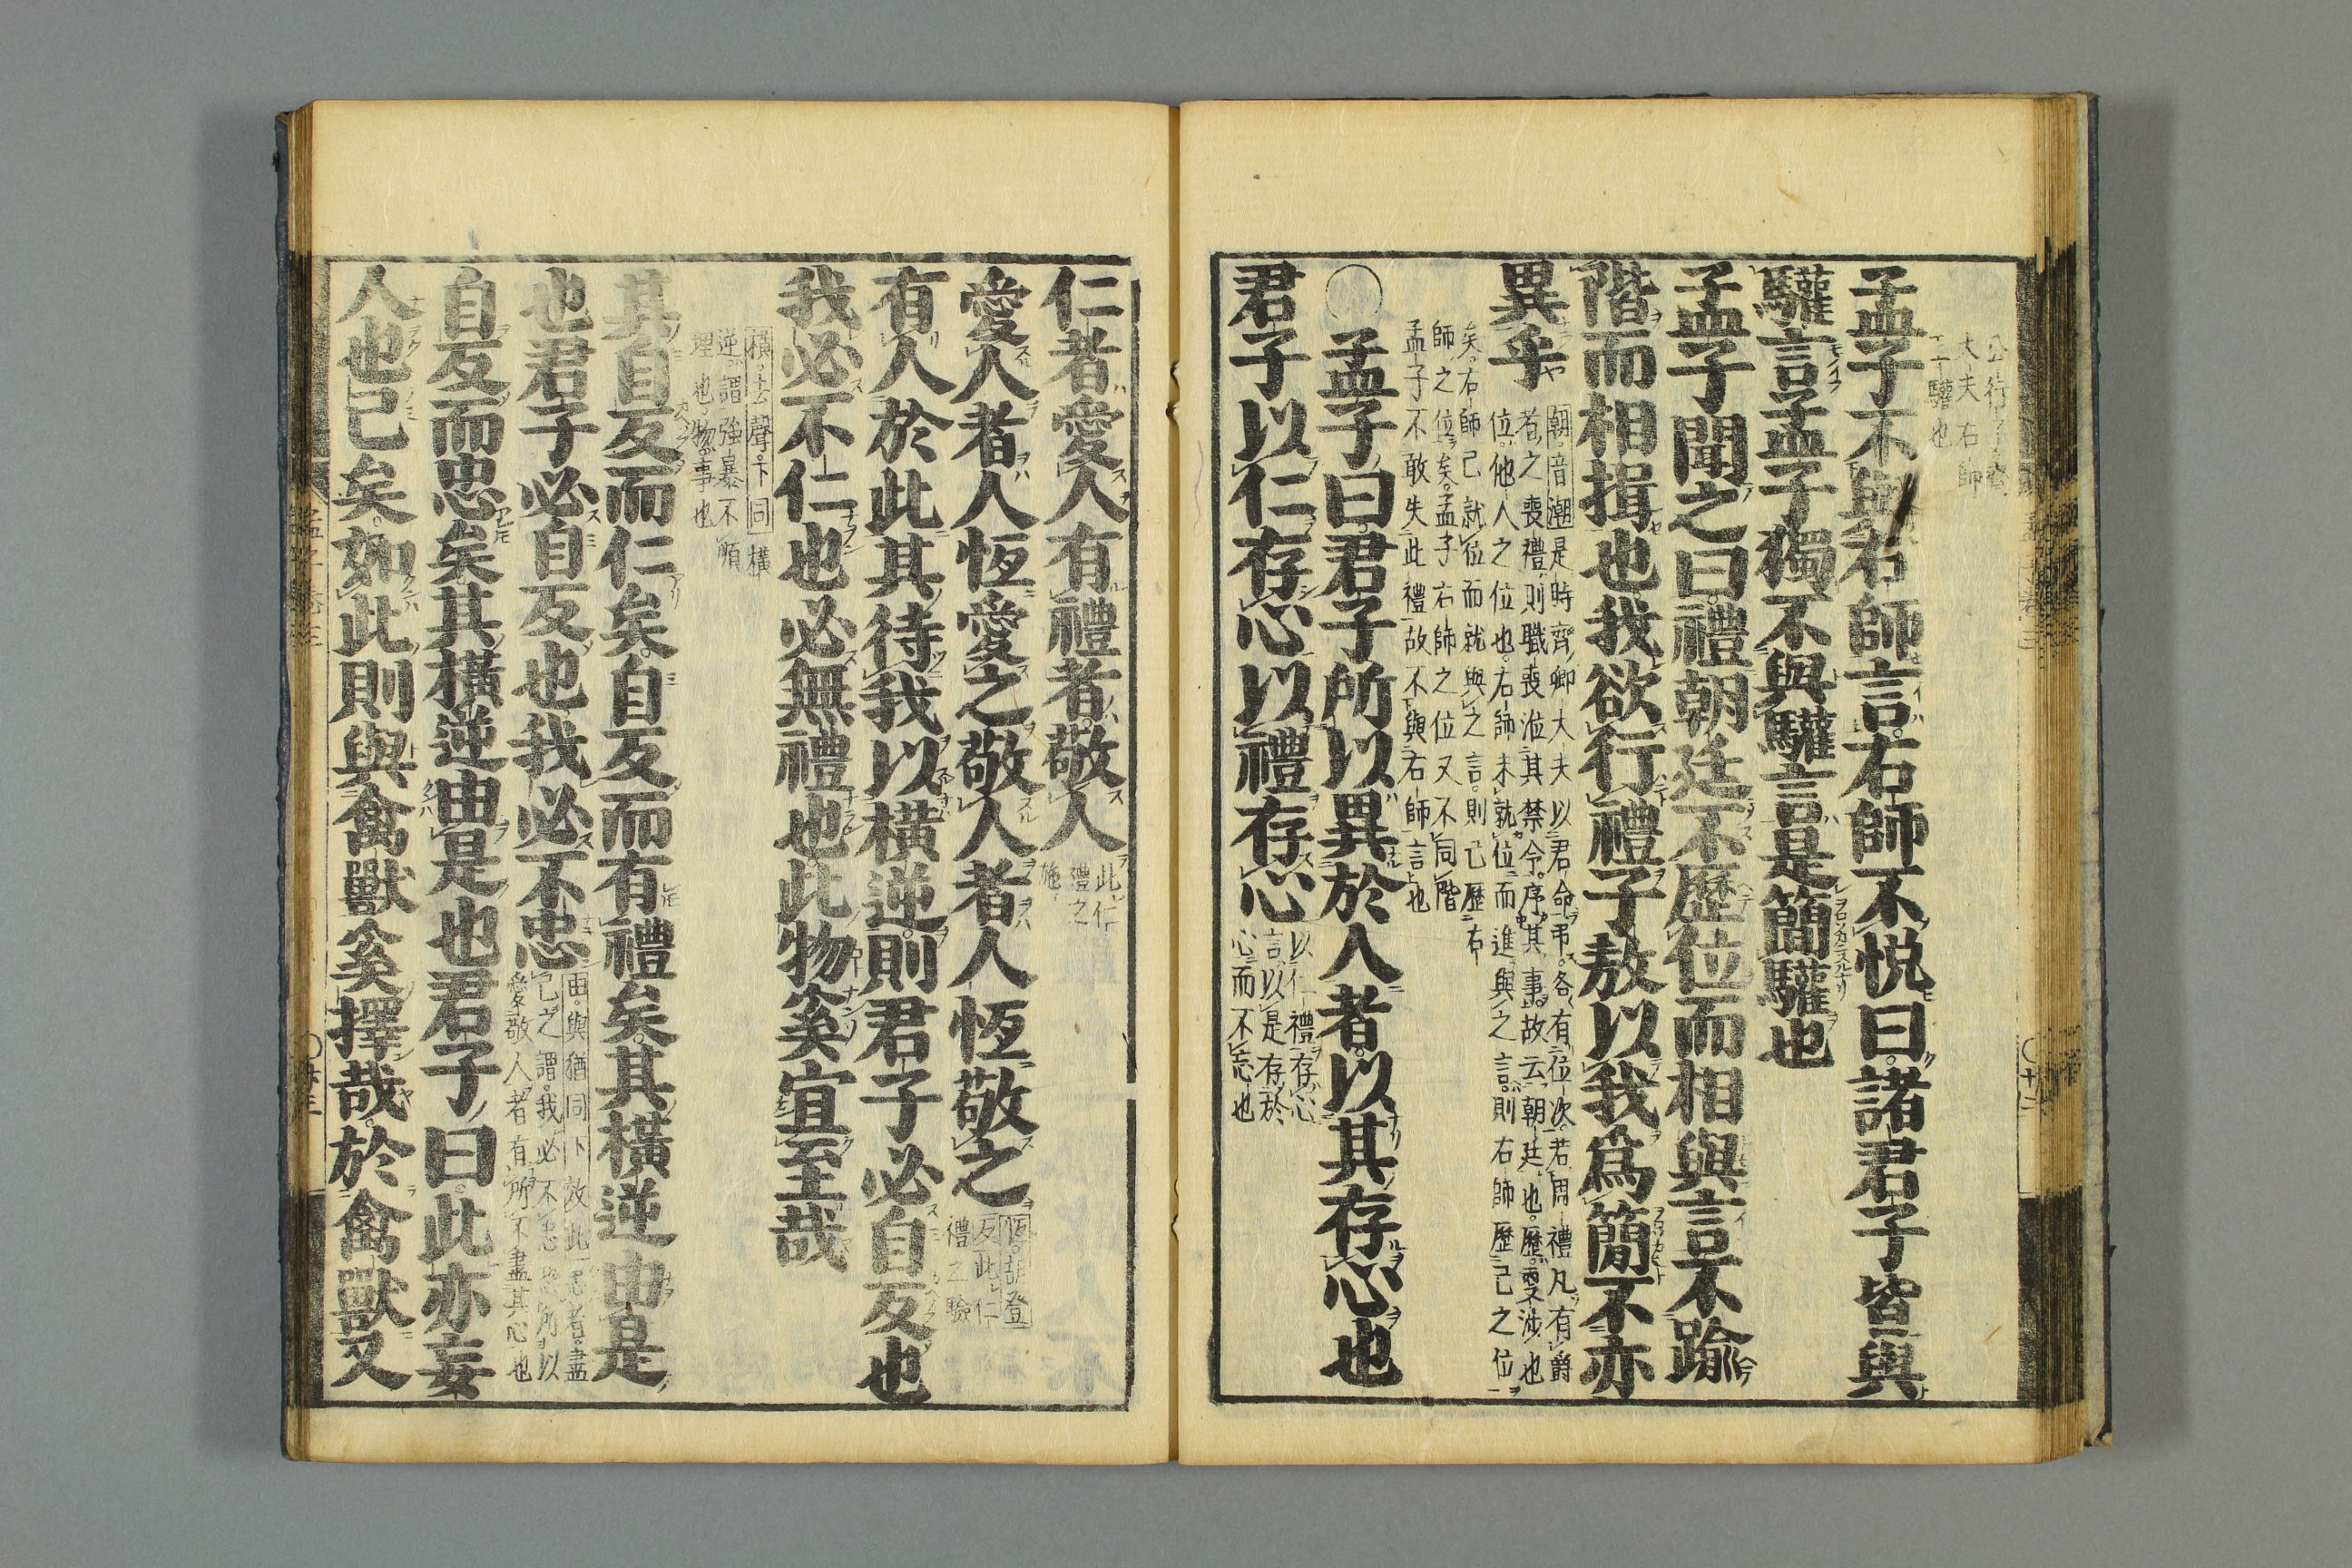 公行子齊
大夫右師
王驩也
孟子不與右師言右師不悅曰諸君子皆與
驩言孟子獨不與驩言是簡驩也
孟子聞之曰禮朝廷不歷位而相與言不踰
階而相揖也我欲行禮子敖以我爲簡不亦
異乎
朝音潮是時齊卿大夫以君命弔各有位次若周禮凡有爵
者之喪禮則職喪涖其禁令序其事故云朝廷也歷更涉也
位他人之位也右師未就位而進與之言則右師歷己之位
矣右師已就位而就與之言則己歷右
師之位矣孟子右師之位又不同階
孟子不敢失此禮故不與右師言也
○孟子曰君子所以異於人者以其存心也
君子以仁存心以禮存心
以仁禮存心
言以是存於
心而不忘也
仁者愛人有禮者敬人
此仁
禮之
施
愛人者人恆愛之敬人者人恆敬之
恆胡登
反此仁
禮之驗
有人於此其待我以橫逆則君子必自反也
我必不仁也必無禮也此物奚宜至哉
橫去聲下同橫
逆謂強暴不順
理也物事也
其自反而仁矣自反而有禮矣其橫逆由是
也君子必自反也我必不忠
由與猶同下放此忠者盡
己之謂我必不忠恐所以
愛敬人者有所不盡其心也
自反而忠矣其橫逆由是也君子曰此亦妄
人也已矣如此則與禽獸奚擇哉於禽獸又